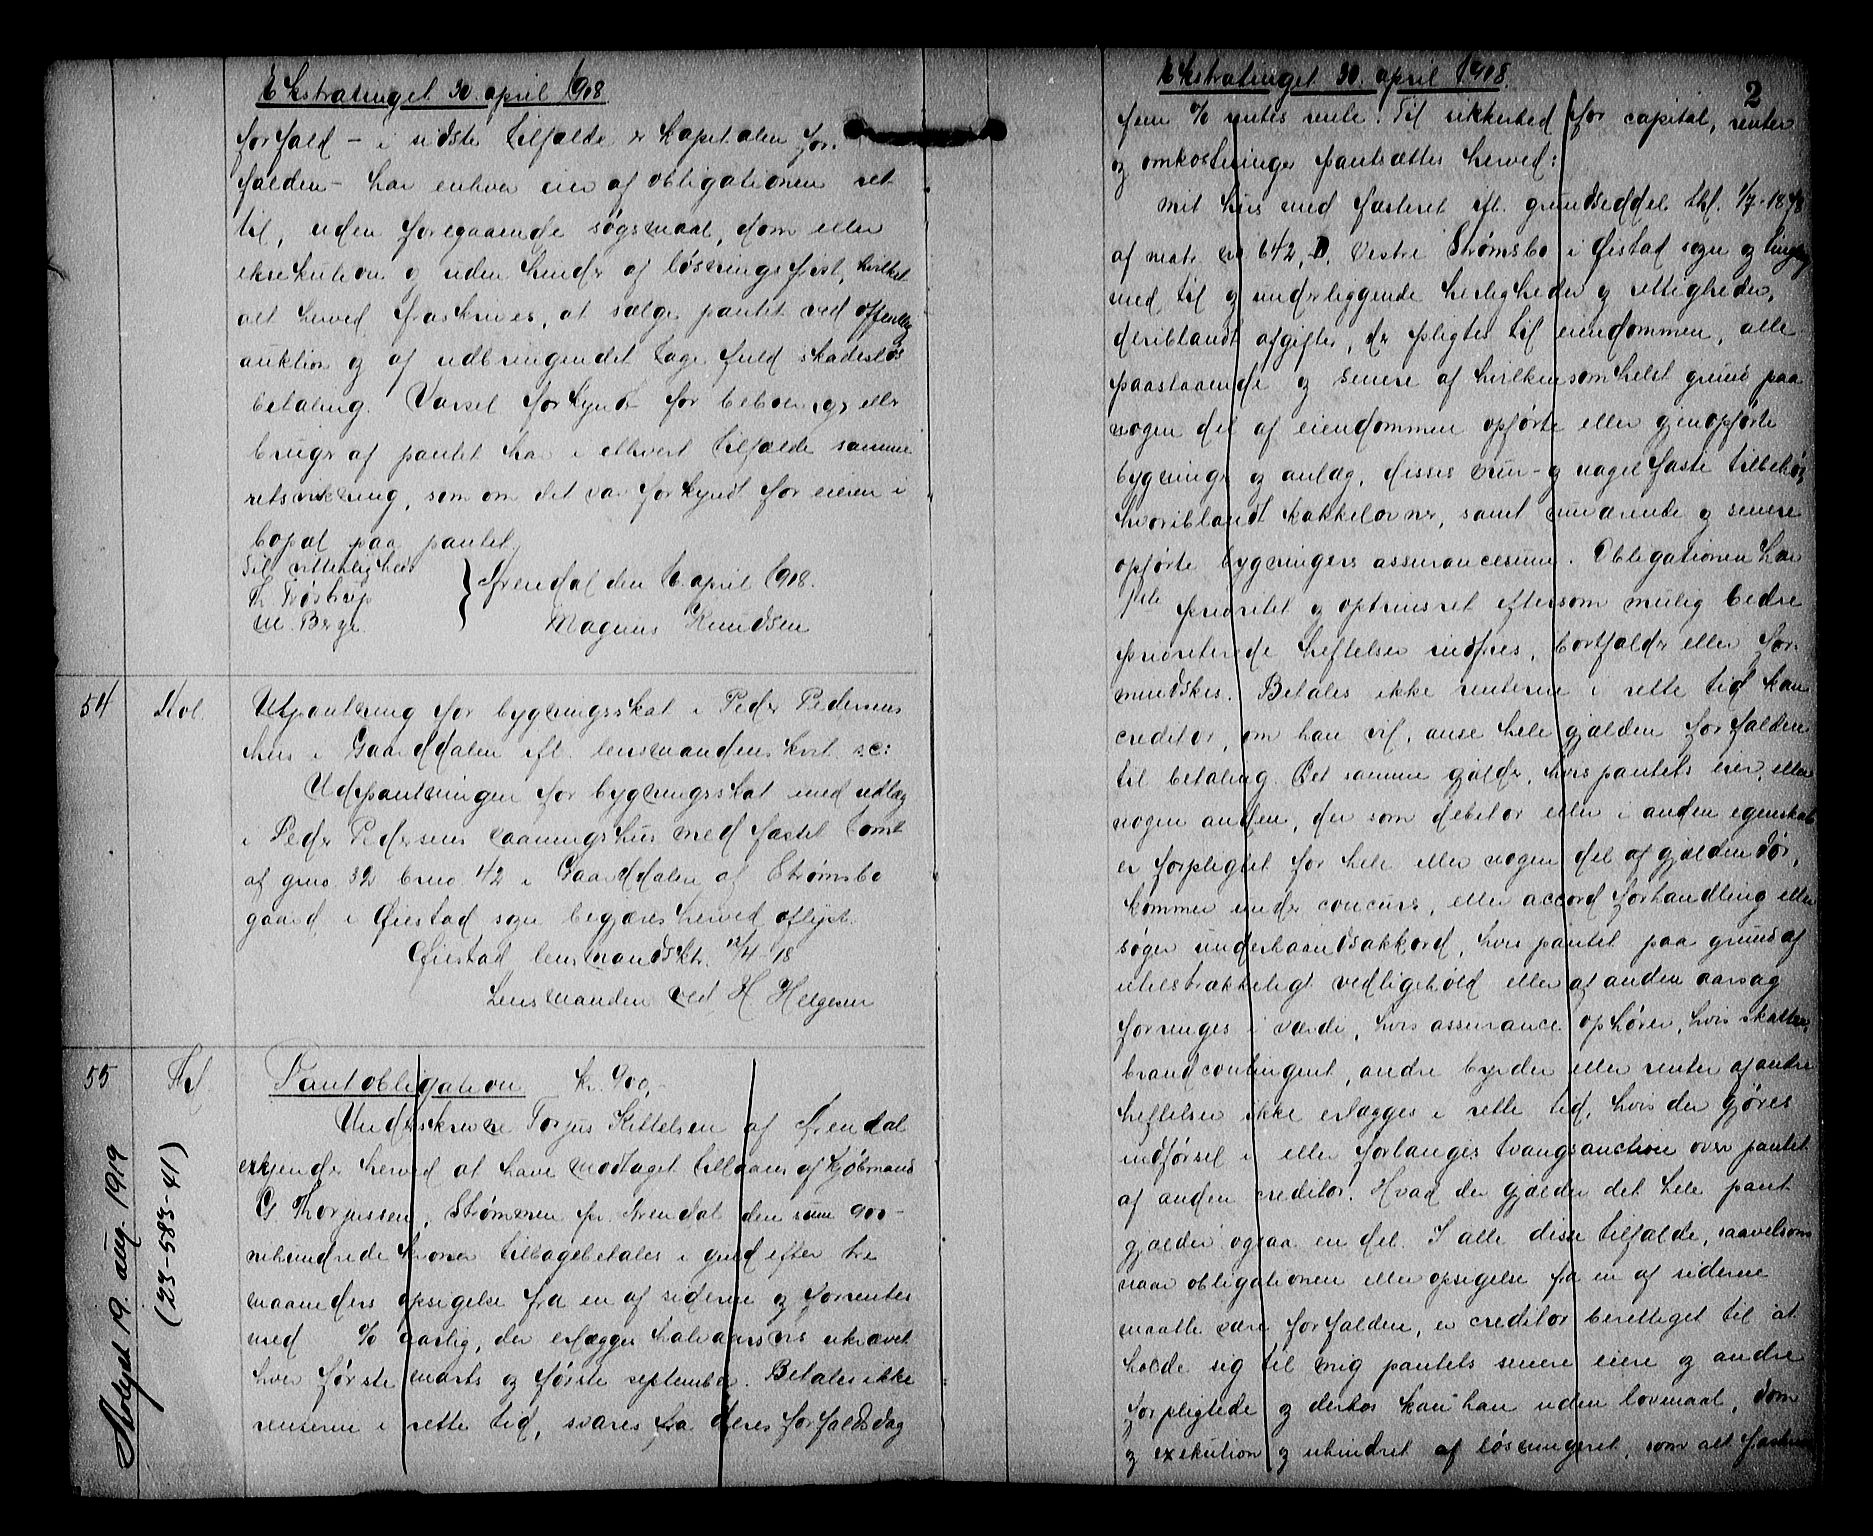 Ekstratinget 30. april 1918
forfald – i sidste tilfælde er kapitalen for-
falden – har enhver eier af obligationen ret
til, uden foregaaende søgsmaal, dom eller
eksekution og uden hinder af løsningsfrist, hvilket
alt herved fraskrives, at sælge pantet ved offentlig
auktion og af udbringendet tage fuld skadesløs
betaling. Varsel forkyndt for beboer eller
bruger af pantet har i ethvert tilfælde samme
retsvirkning, som om det var forkyndt for eieren i
bopæl paa pantet.
Til vitterlighed
Th Trøstrup
M. Berge.
} Arendal den 6. april 1918.
Magnus Knudsen
54 Hol.
Utpantning for bygningsskat i Peder Pedersens
hus i Gaarddalen eft. lensmandens kort. sc:
Udpantningen for bygningsskat med udlæg
i Peder Pedersens vaaningshus med fæstet tomt
af gno. 32 bno. 42 i Gaarddalen af Strømsbo
gaard i Øiestad sogn begjæres herved aflyst.
Øiestad lensmandsktr. 12/4-18
Lensmanden ved H Helgesen
55
Pantobligation kr. 900,-
Underskrevne Torjus Kittelsen af Arendal
erkjender herved at have modtaget tillaans af kjøbmand
G Thorjussen, Strømmen pr. Arendal den sum 900 –
nihundrede kroner tilbagebetales i gjæld efter tre
maaneders opsigelse fra en af siderne og forrentes
med % aarlig, der erlægges halvaarsvis ukrævet
hver første marts og første september. Betales ikke
renterne i rette tid, svares fra deres forfaldsdag
Avlyst 19. aug. 1919
(23-583-41)
Ekstratinget 30. april 1918.
2
fem % rentes rente. Til sikkerhed for capital, renter
og omkostninger pantsættes herved:
mit hus med fæsteret eft. grundseddel thl. 1/7-1898
af matr. no 642, D, Vestre Strømsbo i Øiestad sogn og tinglag
med til og underliggende herligheder og rettigheder,
deriblandt afgifter, der pligtes til eiendommen, alle
paastaaende og senere af hvilkensomhelst grund paa
nogen del af eiendommen opførte eller gjenopførte
bygninger og anlæg, disses mur- og nagelfaste tilbehør,
hvoriblandt kakkelovner, samt nuværende og senere
opførte bygningers assurancesum. Obligationen har
prioritet og optrinsret eftersom mulig bedre
prioriterede heftelser indfries, bortfalder eller for-
mindskes. Betales ikke renterne i rette tid kan
creditor, om han vil, anse hele gjælden forfalden
til betaling. Det samme gjælder, hvis pantets eier, eller
nogen anden, der som debitor eller i anden egenskab
er forpligtet for hele eller nogen del af gjælden dør,
kommer under concurs, eller accordforhandling eller
søger underhaandsakkord, hvis pantet paa grund af
utilstrækkeligt vedligehold eller af anden aarsag
forringes i værdi, hvis assurance ophører, hvis skatter,
brandcontingent, andre byrder eller renter af andre
heftelser ikke erlægges i rette tid, hvis der gjøres
indførsel i eller forlanges tvangsauction over pantet
af anden creditor. Hvad der gjælder det hele pant
gjælder ogsaa en del. I alle disse tilfælde, saavelsom
naar obligationen efter opsigelse fra en af siderne
maatte være forfalden, er creditor berettiget til at
holde sig til mig pantets senere eiere og andre
forpligtede og derhos kan han uden lovmaal, dom
og exekution og uhindret af løsningsret, som alt